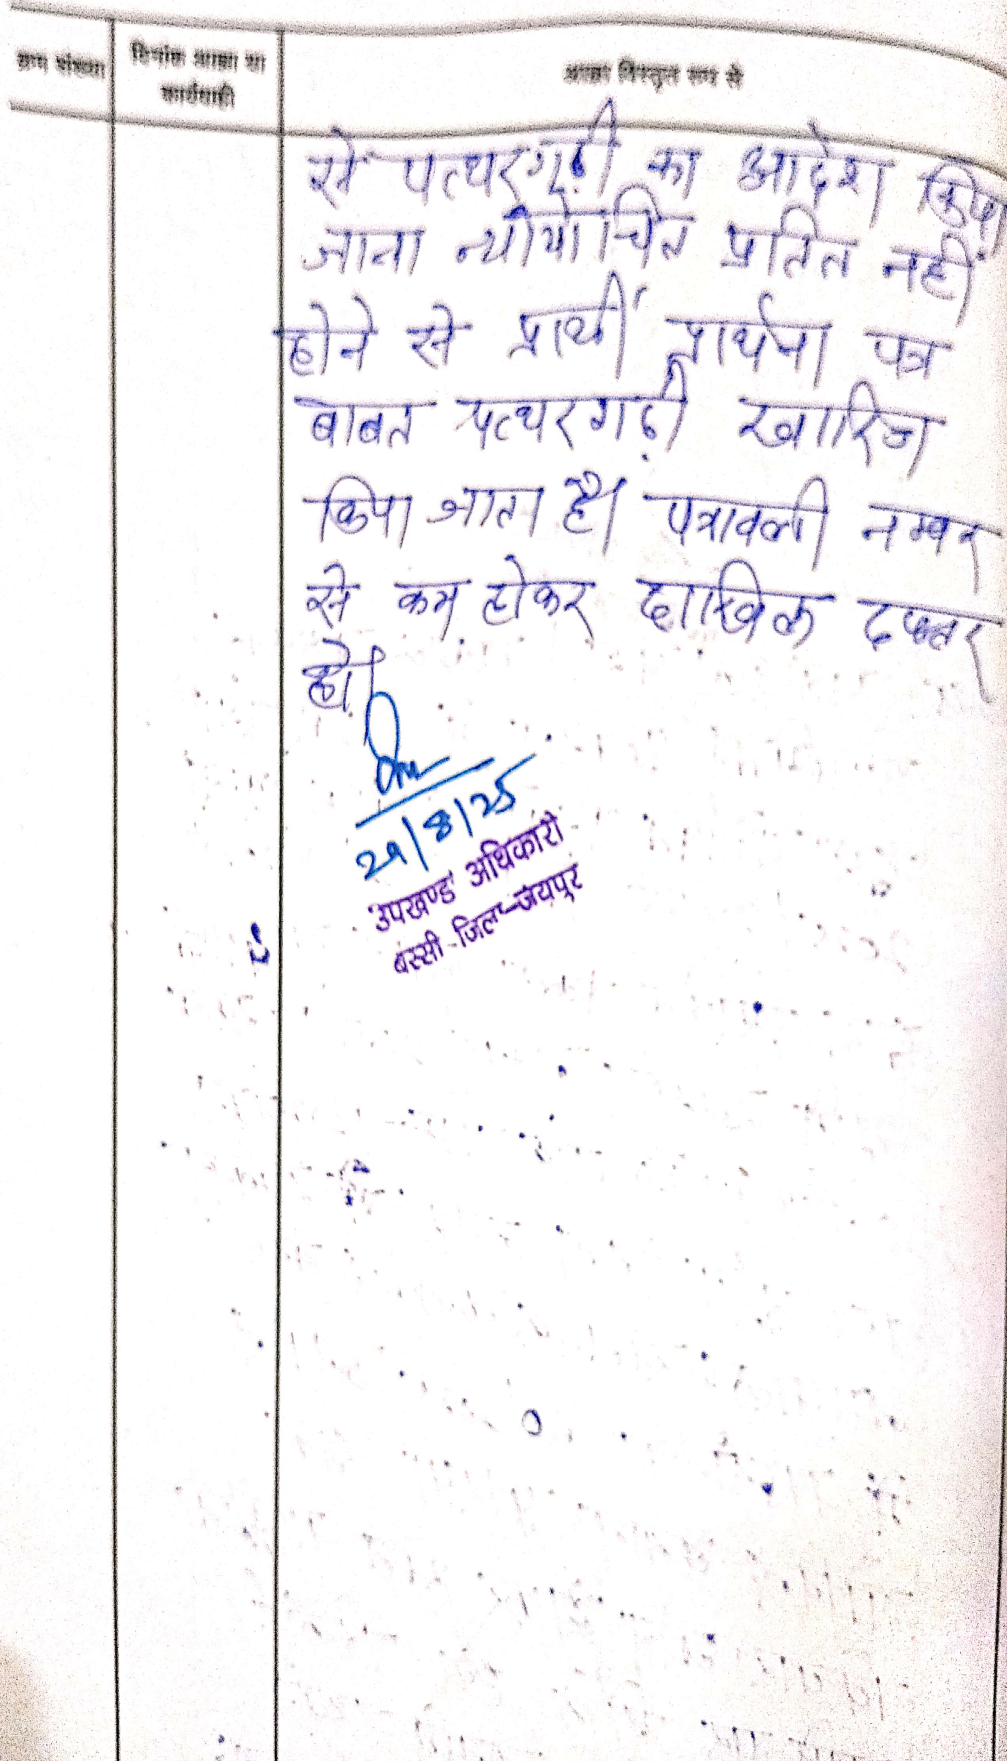 क्रम संख्या
दिनांक आज्ञा या
कार्यवाही
आज्ञा विस्तृत रूप से
से पत्थरगढ़ी का आदेश किया
जाना न्यायोचित प्रतित नहीं
होने से प्रार्थी प्रार्थना पत्र
बाबत पत्थरगढ़ी खारिज
किया जाता है। पत्रावली नम्बर
से कम होकर दाखिल दफ्तर
हो।
29/8/25
उपखण्ड अधिकारी
बस्सी जिला-जयपुर